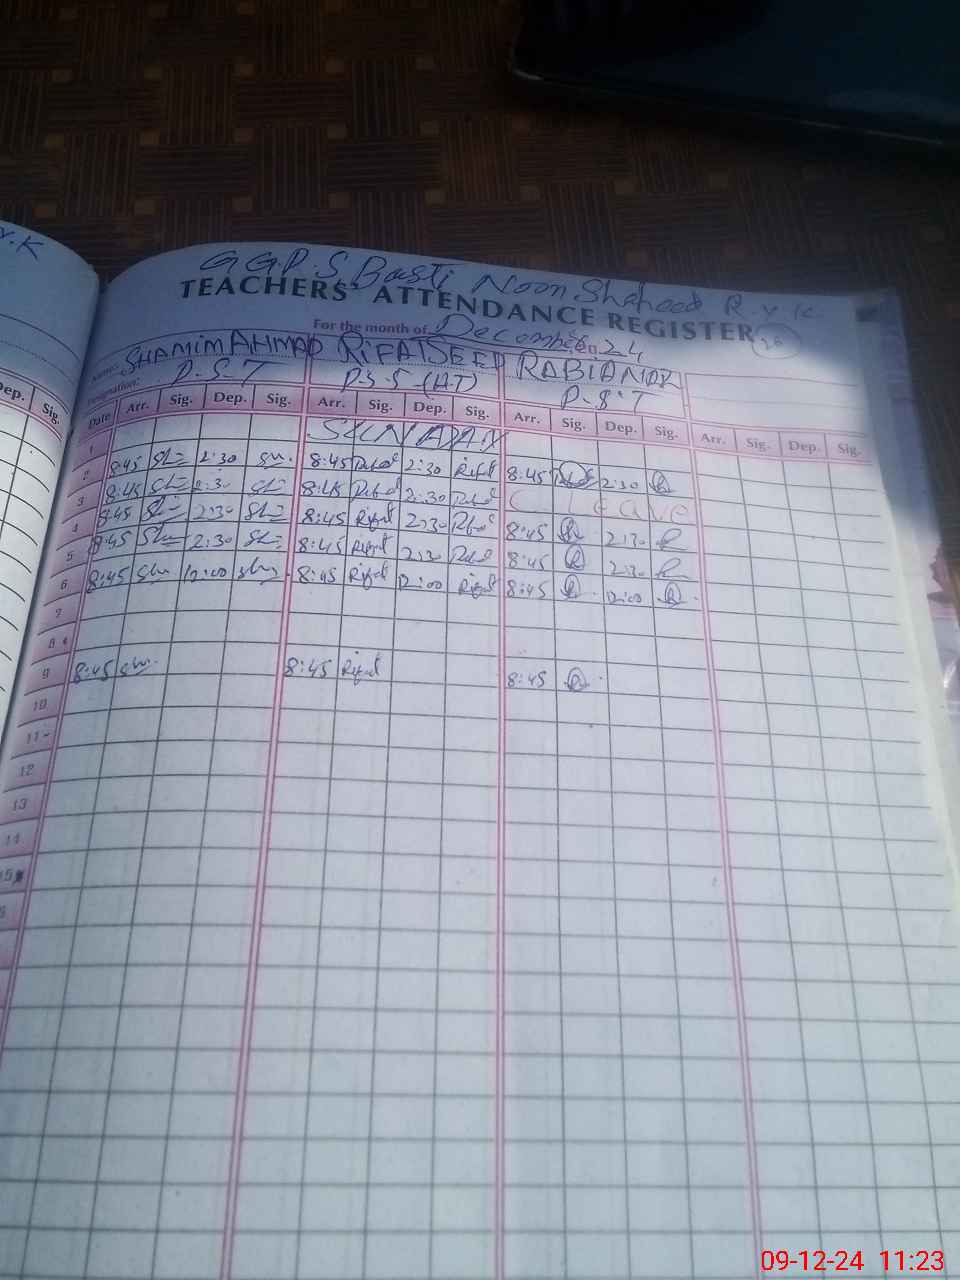 y.K
G.G.P.S Basti Noon Shaheed R.Y.K
TEACHERS' ATTENDANCE REGISTER
For the month of December 2024
26
Name: SHAMIM AHMAD RIFAT SEED
Designation: P.S.T P.S.S (H.T) P.S.T
Dep. Sig.
Date Arr. Sig. Dep. Sig. Arr. Sig. Dep. Sig. Arr. Sig. Dep. Sig. Arr. Sig. Dep. Sig.
1 SUNDAY
2 8:45 2:30 8:45 2:30 8:45 2:30
3 8:45 2:30 8:45 2:30 C Leave
4 8:45 2:30 8:45 Rifat 2:30 8:45 2:30
5 8:45 2:30 8:45 Rifat 2:30 8:45 2:30
6 8:45 12:00 8:45 Rifat 12:00 Rifat 8:45 12:00
7
8
9 8:45 8:45 Rifat 8:45
10
11
12
13
14
15
09-12-24 11:23